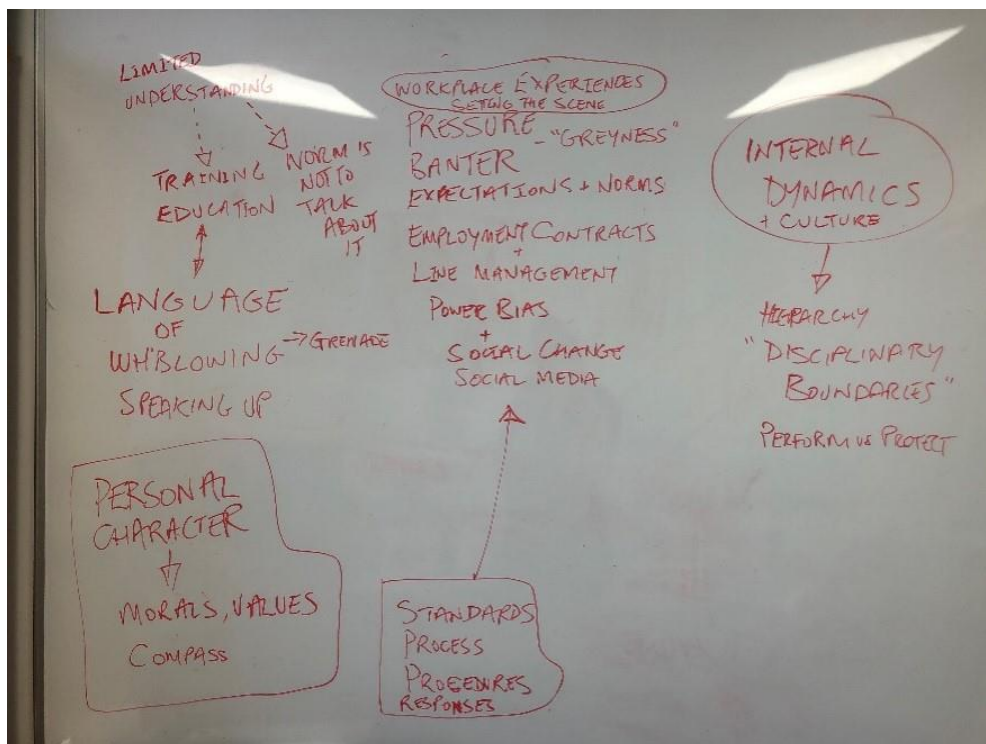 LIMITED
UNDERSTANDING
TRAINING
EDUCATION
NORM IS
NOT TO
TALK
ABOUT
IT
LANGUAGE
OF
WH'BLOWING
→ GRENADE
SPEAKING UP
PERSONAL
CHARACTER
MORALS, VALUES
COMPASS
WORKPLACE EXPERIENCES
SETING THE SCENE
PRESSURE
- "GREYNESS"
BANTER
EXPECTATIONS + NORMS
EMPLOYMENT CONTRACTS
+
LINE MANAGEMENT
POWER BIAS
+
SOCIAL CHANGE
SOCIAL MEDIA
STANDARDS
PROCESS
PROCEDURES
RESPONSES
INTERNAL
DYNAMICS
+ CULTURE
HIERARCHY
"DISCIPLINARY
BOUNDARIES"
PERFORM VS PROTECT